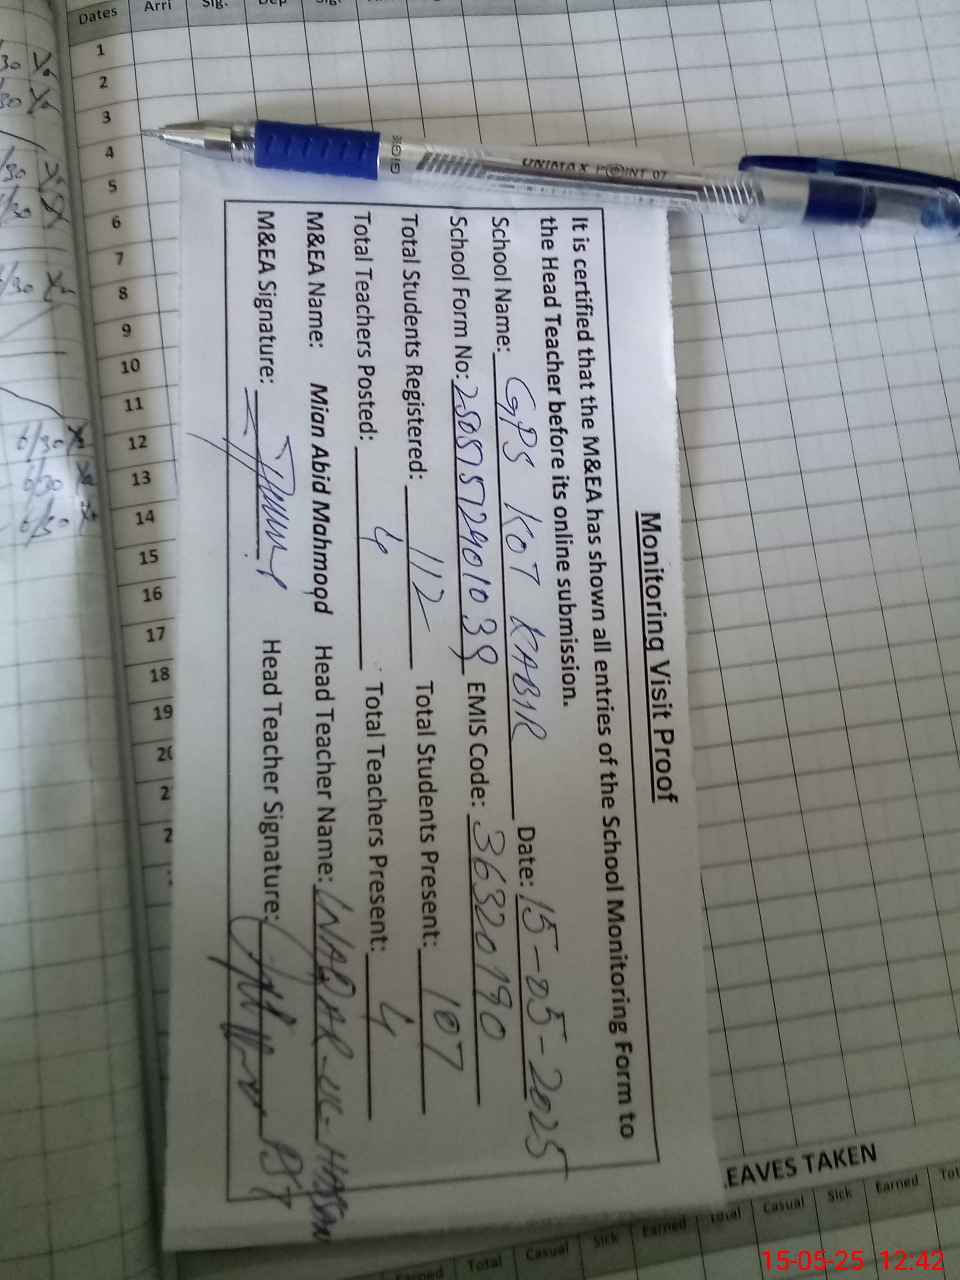 Monitoring Visit Proof
It is certified that the M&EA has shown all entries of the School Monitoring Form to
the Head Teacher before its online submission.
School Name: GPS KOT KABIR Date: 15-05-2025
School Form No: EMIS Code: 36320190
Total Students Registered: 112 Total Students Present: 107
Total Teachers Posted: 4 Total Teachers Present: 4
M&EA Name: Mian Abid Mahmood Head Teacher Name: WAQAR-UL-HASSAN
M&EA Signature: Head Teacher Signature: PST
UNIMAX POINT 07
Dates Arri Sig. Dep Sig.
1
2
3
4
5
6
7
8
9
10
11
12
13
14
15
16
17
18
19
LEAVES TAKEN
Earned Total Casual Sick Earned Total Casual Sick Earned
6/30
6/30
6/30
15-05-25 12:42